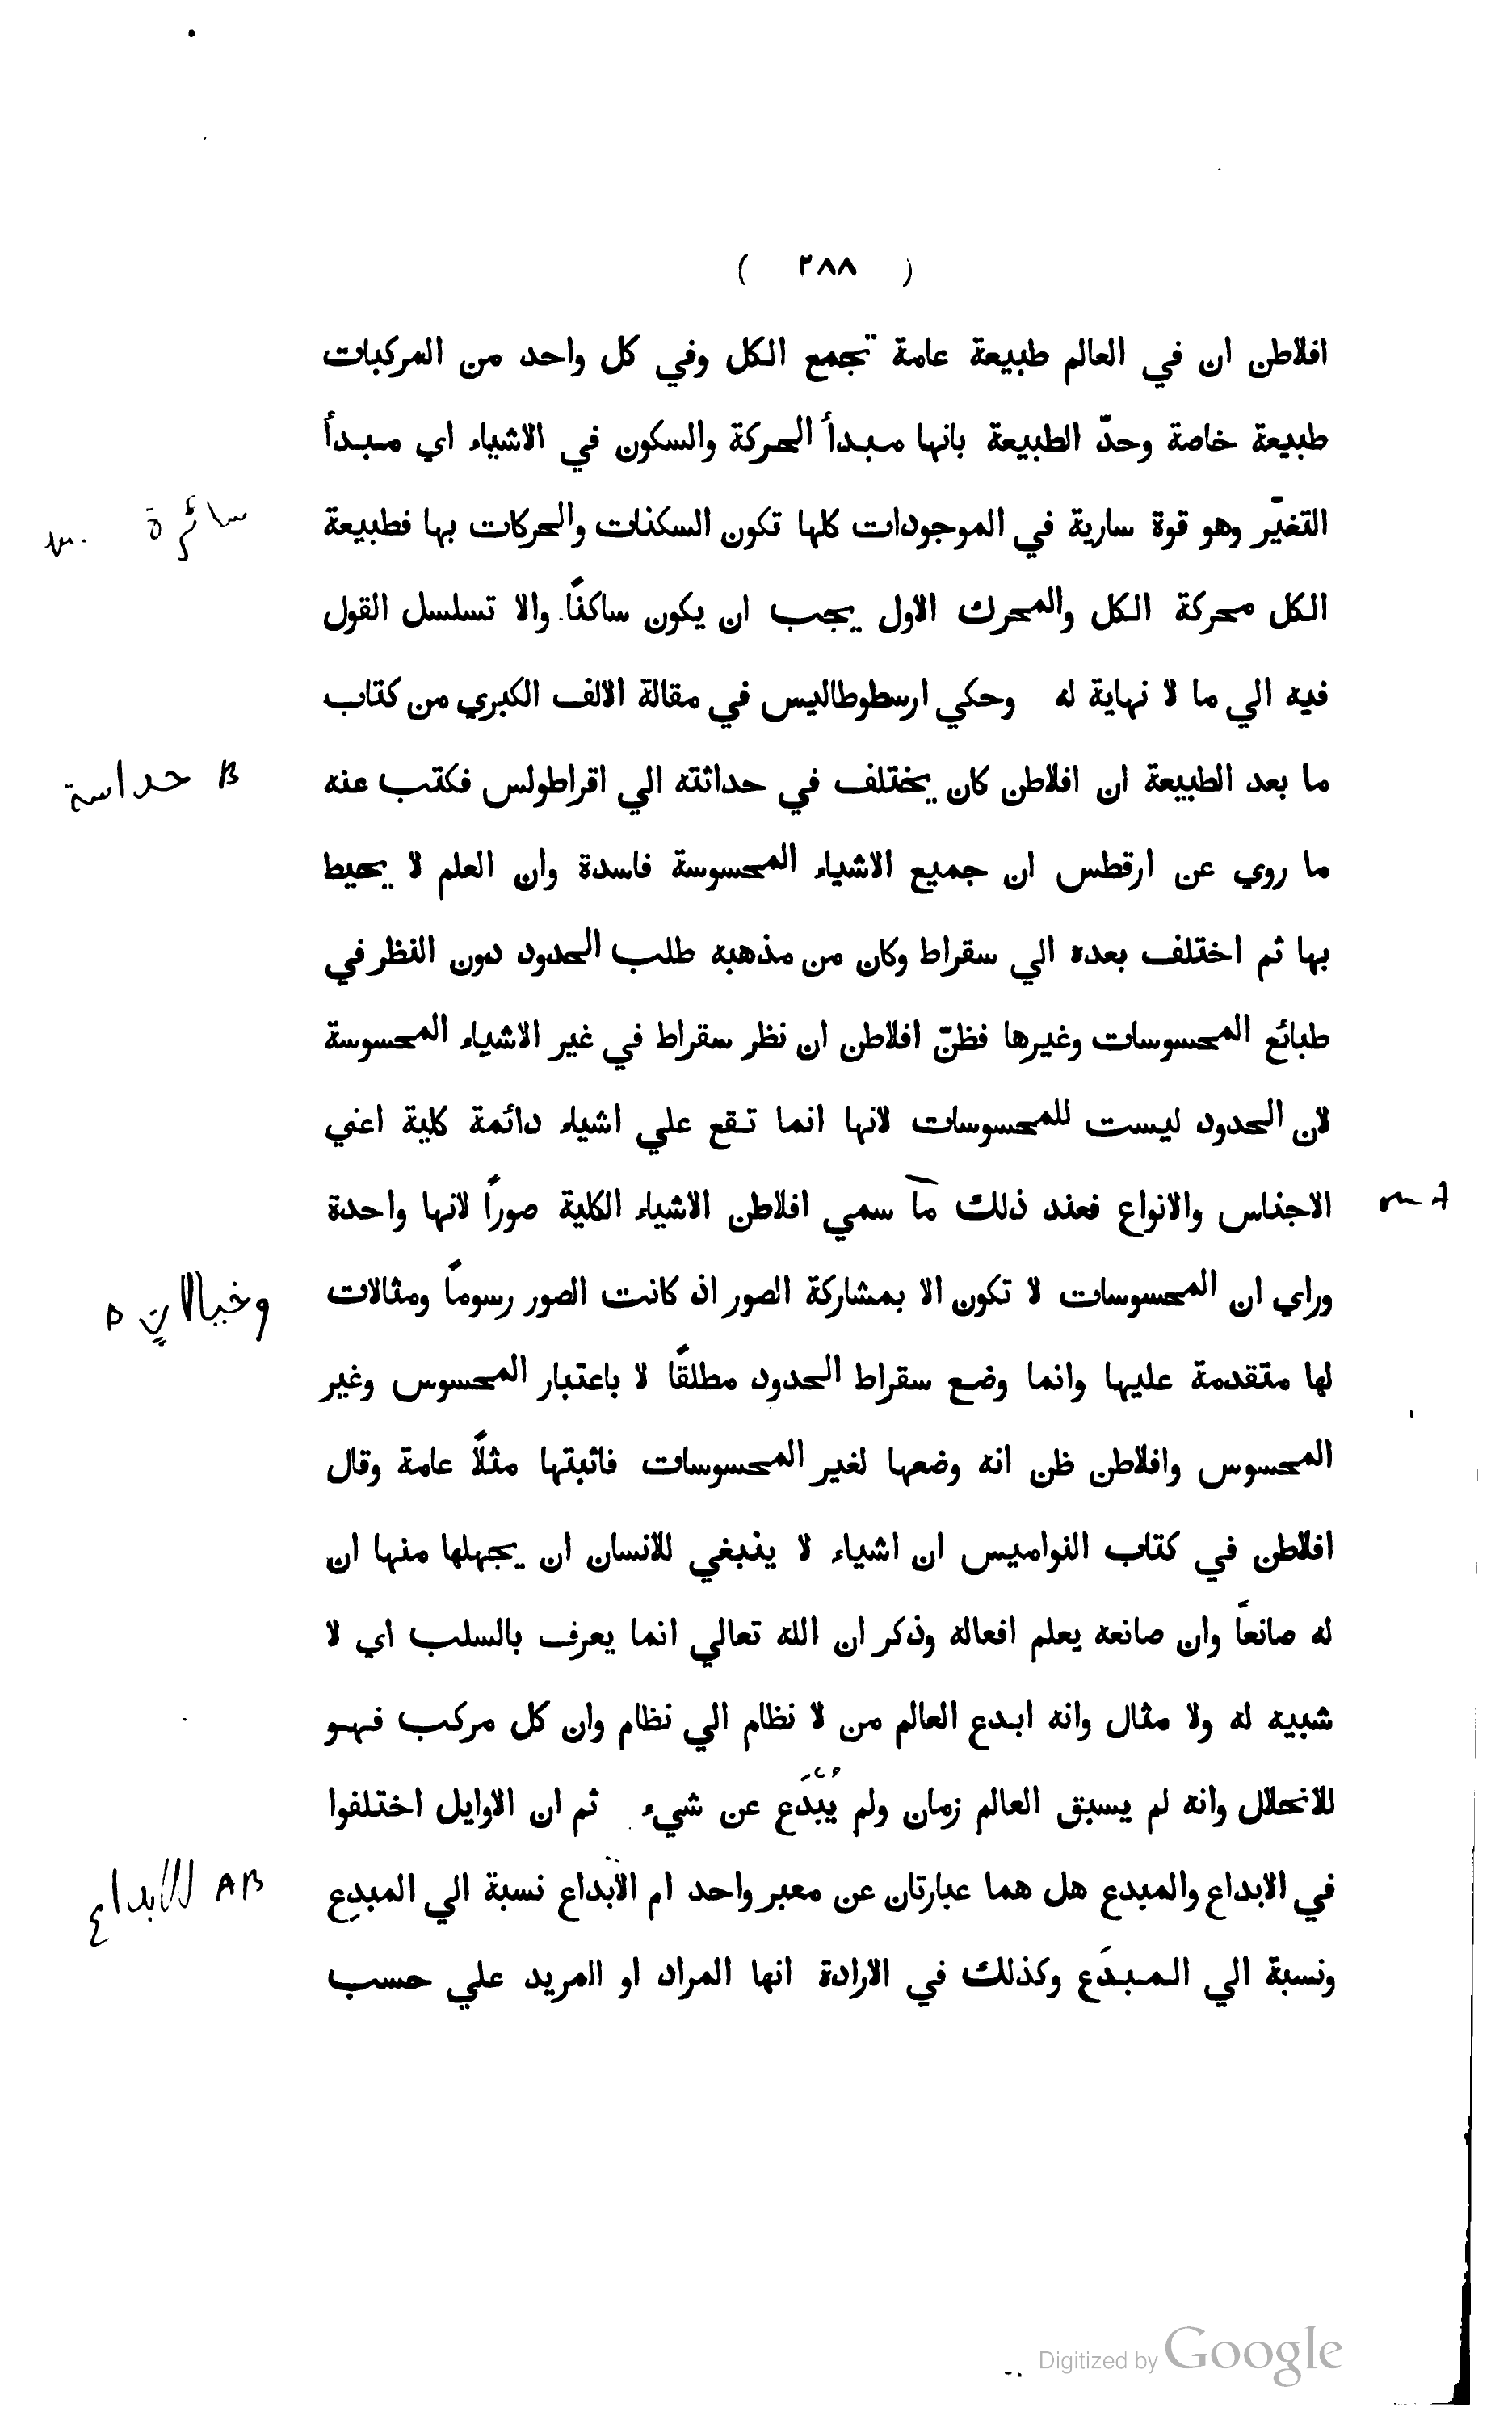 ( ٢٨٨ )
افلاطن ان في العالم طبيعة عامة تجمع الكل وفي كل واحد من المركبات
طبيعة خاصة وحدّ الطبيعة بانها مبدأ الحركة والسكون في الاشياء اي مبدأ
التغيّر وهو قوة سارية في الموجودات كلها تكون السكنات والحركات بها فطبيعة
سائرة
الكل محركة الكل والمحرك الاول يجب ان يكون ساكنًا والا تسلسل القول
فيه الي ما لا نهاية له وحكي ارسطوطاليس في مقالة الالف الكبري من كتاب
ما بعد الطبيعة ان افلاطن كان يختلف في حداثته الي اقراطولس فكتب عنه
B حداسة
ما روي عن ارقطس ان جميع الاشياء المحسوسة فاسدة وان العلم لا يحيط
بها ثم اختلف بعده الي سقراط وكان من مذهبه طلب الحدود دون النظر في
طبائع المحسوسات وغيرها فظنّ افلاطن ان نظر سقراط في غير الاشياء المحسوسة
لان الحدود ليست للمحسوسات لانها انما تقع علي اشياء دائمة كلية اعني
الاجناس والانواع فعند ذلك ما سمي افلاطن الاشياء الكلية صورًا لانها واحدة
وراي ان المحسوسات لا تكون الا بمشاركة الصور اذ كانت الصور رسومًا ومثالات
وخيالات
لها متقدمة عليها وانما وضع سقراط الحدود مطلقًا لا باعتبار المحسوس وغير
المحسوس وافلاطن ظن انه وضعها لغير المحسوسات فاثبتها مثلًا عامة وقال
افلاطن في كتاب النواميس ان اشياء لا ينبغي للانسان ان يجهلها منها ان
له صانعًا وان صانعه يعلم افعاله وذكر ان الله تعالي انما يعرف بالسلب اي لا
شبيه له ولا مثال وانه ابدع العالم من لا نظام الي نظام وان كل مركب فهو
للانحلال وانه لم يسبق العالم زمان ولم يُبْدَع عن شيء ثم ان الاوايل اختلفوا
في الابداع والمبدع هل هما عبارتان عن معبر واحد ام الابداع نسبة الي المبدِع
AB للابداع
ونسبة الي المبدَع وكذلك في الارادة انها المراد او المريد علي حسب
Digitized by Google